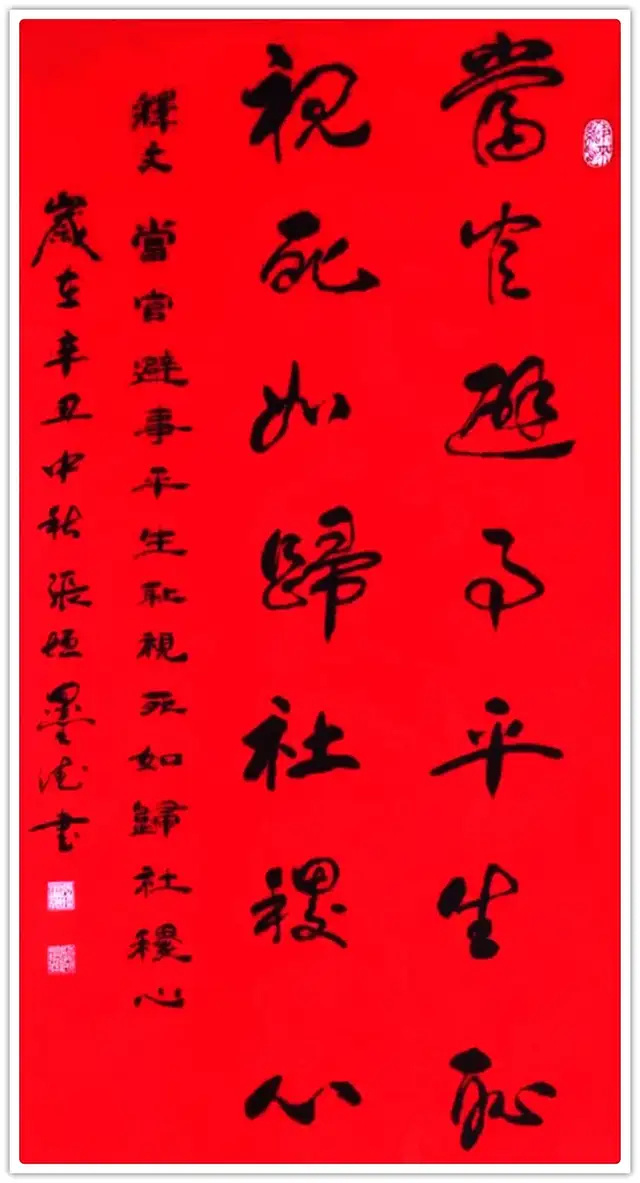 當官避事平生耻
視死如歸社稷心
釋文 當官避事平生耻視死如歸社稷心
歲在辛丑中秋張墨書